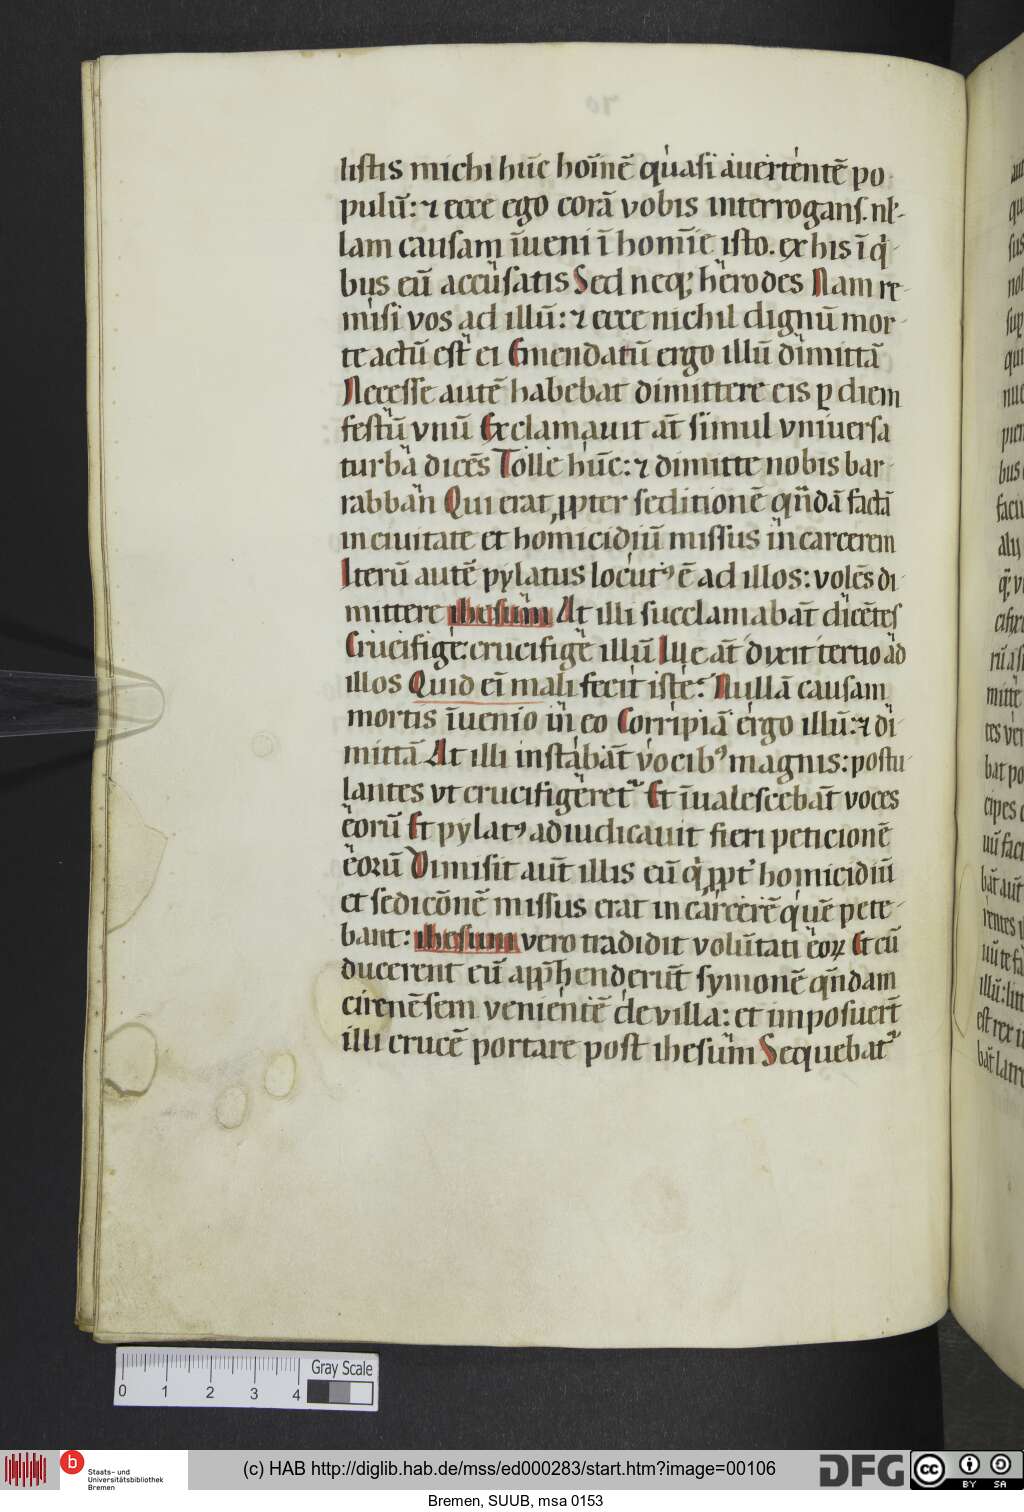 listis michi hūc hoīnē quasi auertentē po
pulū: ⁊ ecce ego corā vobis interrogans. nl̄-
lam causam īueni ī homīe isto. ex his ī q̇-
bus eū accusatis Sed neqȝ herodes Nam re-
misi vos ad illū: ⁊ ecce nichil dignū mor-
te actū est ei Emendatū ergo illū dimittā
Necesse autē habebat dimittere eis ꝑ diem
festū vnū Exclamauit āt simul vniuersa
turba dicēs Tolle hūc: ⁊ dimitte nobis bar-
rabban Qui erat ꝓpter seditionē qn̄dā factā
in ciuitate et homicidiū missus in carcerem
Iterū autē pylatus locutꝰ ē ad illos: volēs di-
mittere ihesum At illi succlamabāt dicētes
Crucifige: crucifige illū Ille āt dixit tertio ad
illos Quid eī mali fecit iste? Nullā causam
mortis īuenio in eo Corripiā ergo illū: ⁊ di-
mittā At illi instabāt vocibꝰ magnis: postu-
lantes vt crucifigeret᷑ Et īualescebāt voces
eorū Et pylatꝰ adiudicauit fieri peticionē
eorū Dimisit aūt illis eū q̇ ꝓpt' homicidiū
et sedicōnē missus erat in carcerē quē pete-
bant: ihesum vero tradidit volūtati eoꝝ Et cū
ducerent eū app̄henderūt symonē qn̄dam
cirenēsem venientē de villa: et imposuert̄
illi crucē portare post ihesum Sequebat᷑
0 1 2 3 4 Gray Scale
b Staats- und
Universitätsbibliothek
Bremen
(c) HAB http://diglib.hab.de/mss/ed000283/start.htm?image=00106
DFG
cc BY SA
Bremen, SUUB, msa 0153